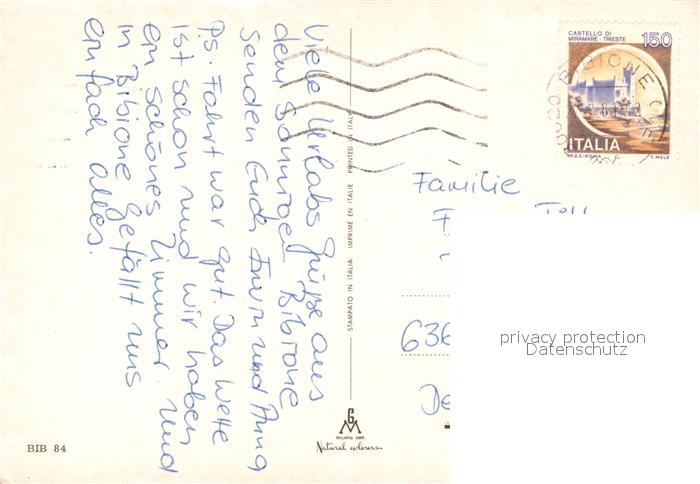 Viele Urlabs Grüße aus
dem Sonnigen Bibione
senden Euch Erwin und Anna
P.s. Fahrt war gut. Das Wette
ist schön und wir haben
ein schönes Zimmer. und
in Bibione gefällt uns
einfach alles.
BIB 84
STAMPATO IN ITALIA IMPRIMÉ EN ITALIE PRINTED IN ITALY
GM
MILANO DEP.
Natural colours
CASTELLO DI
MIRAMARE - TRIESTE
150
ITALIA
I.P.Z.S.-ROMA
T. MELE
BIBIONE
Familie
636
De
privacy protection
Datenschutz